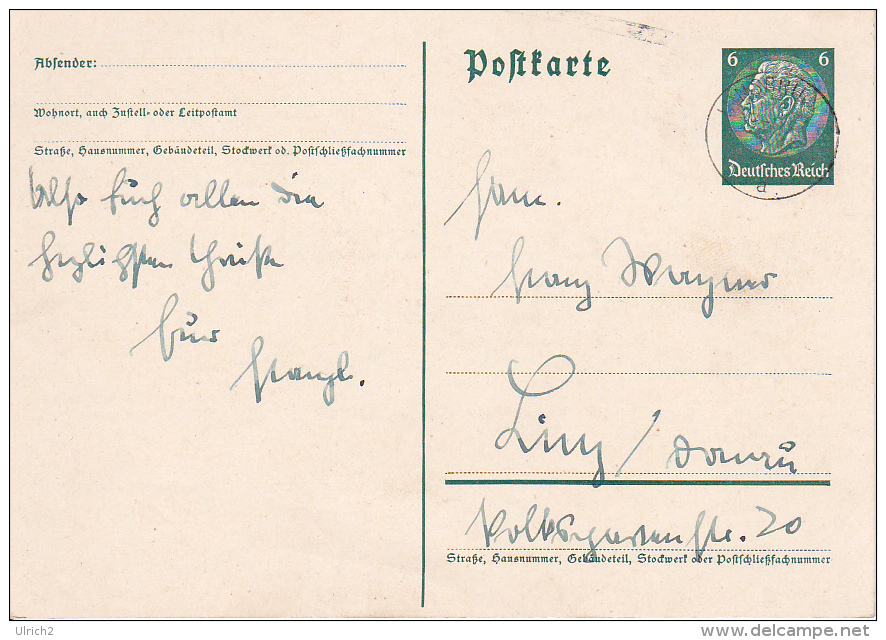 Postkarte
6 6
Deutsches Reich
a
Absender:
Wohnort, auch Zustell- oder Leitpostamt
Straße, Hausnummer, Gebäudeteil, Stockwerk od. Postschließfachnummer
Also Euch allen die
herzlichsten Grüße
Euer
Franzl.
Fam.
Franz Wagner
Linz / Donau
Volksgartenstr. 20
Straße, Hausnummer, Gebäudeteil, Stockwerk oder Postschließfachnummer
Ulrich2
delcampe.net